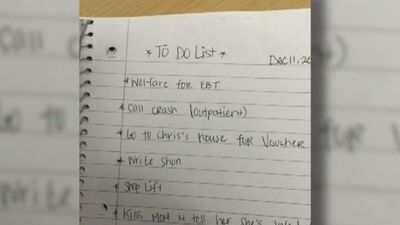 * TO DO List *
Dec 11, 20
* Welfare for EBT
* Call crash (outpatient)
* Go to Chris's house for Voucher
* Write Shon
* Shop Lift
* Kiss MOM N tell her she's